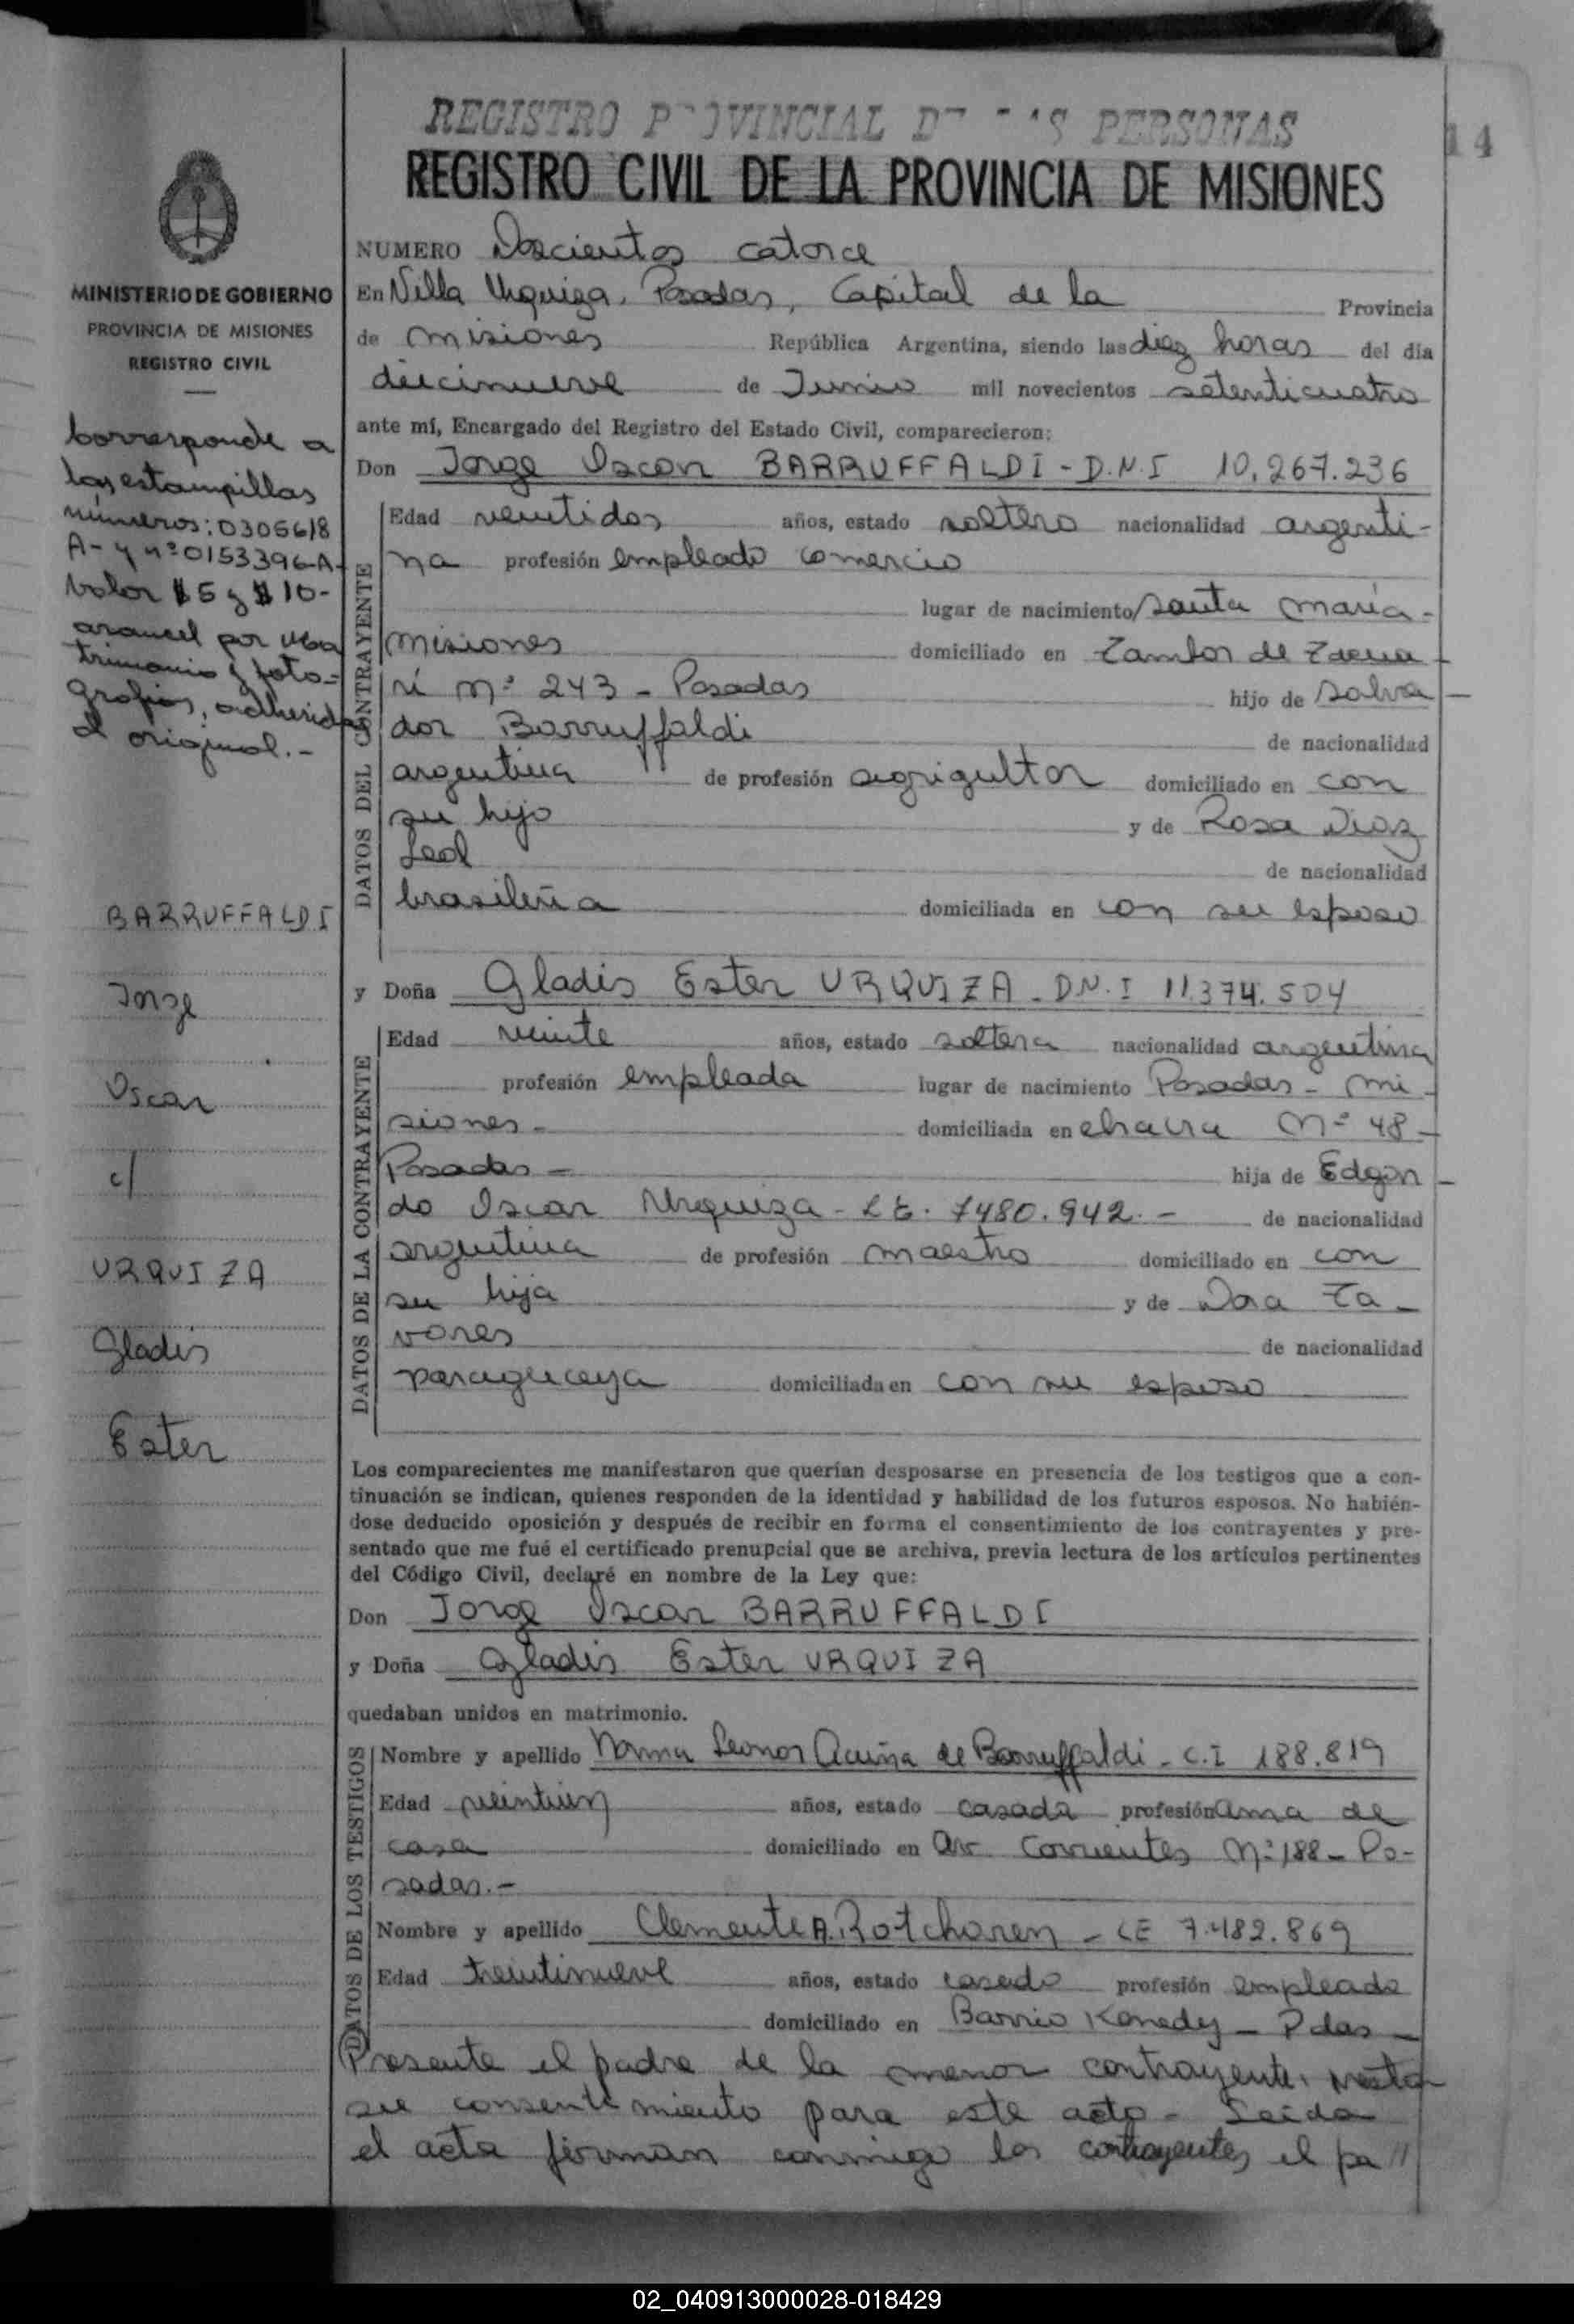 REGISTRO PROVINCIAL DE LAS PERSONAS
14
REGISTRO CIVIL DE LA PROVINCIA DE MISIONES
MINISTERIO DE GOBIERNO
PROVINCIA DE MISIONES
REGISTRO CIVIL
Corresponde a
las estampillas
números: 0305618
A- y nº 0153396-A-
valor $5 y $10-
arancel por Ma
trimonio y foto=
grafias, adheridas
al original.-
BARRUFFALDI
Jorge
Oscar
c/
URQUIZA
Gladis
Ester
NUMERO Doscientos catorce
En Villa Urquiza, Posadas, Capital de la Provincia
de Misiones República Argentina, siendo las diez horas del día
diecinueve de Junio mil novecientos setenticuatro
ante mí, Encargado del Registro del Estado Civil, comparecieron:
Don Jorge Oscar BARRUFFALDI - D.N.I 10.267.236
DATOS DEL CONTRAYENTE
Edad veintidos años, estado soltero nacionalidad argenti-
na profesión empleado comercio
lugar de nacimiento Santa María-
Misiones domiciliado en Tambor de Tacua-
rí Nº 243 - Posadas hijo de Salva-
dor Barruffaldi de nacionalidad
argentina de profesión agrigultor domiciliado en con
su hijo y de Rosa Diaz
Leal de nacionalidad
brasileña domiciliada en con su esposo
y Doña Gladis Ester URQUIZA - D.N.I 11.374.504
DATOS DE LA CONTRAYENTE
Edad veinte años, estado soltera nacionalidad argentina
profesión empleada lugar de nacimiento Posadas - Mi-
siones - domiciliada en chacra Nº 48 -
Posadas - hija de Edgar-
do Oscar Urquiza - L.E. 7480.942.- de nacionalidad
argentina de profesión maestro domiciliado en con
su hija y de Dora Ta-
vares de nacionalidad
paraguaya domiciliada en con su esposo
Los comparecientes me manifestaron que querían desposarse en presencia de los testigos que a con-
tinuación se indican, quienes responden de la identidad y habilidad de los futuros esposos. No habién-
dose deducido oposición y después de recibir en forma el consentimiento de los contrayentes y pre-
sentado que me fué el certificado prenupcial que se archiva, previa lectura de los artículos pertinentes
del Código Civil, declaré en nombre de la Ley que:
Don Jorge Oscar BARRUFFALDI
y Doña Gladis Ester URQUIZA
quedaban unidos en matrimonio.
DATOS DE LOS TESTIGOS
Nombre y apellido Norma Leonor Acuña de Barruffaldi - C.I 188.819
Edad veintiun años, estado casada profesión ama de
casa domiciliado en Av. Corrientes Nº 188 - Po-
sadas.-
Nombre y apellido Clemente A. Rotchoren - LE 7.482.869
Edad treintinueve años, estado casado profesión empleado
domiciliado en Barrio Kenedy - Pdas -
Presente el padre de la menor contrayente, presta
su consentimiento para este acto - Leida
el acta firman conmigo los contrayentes, el pa//
02_040913000028-018429